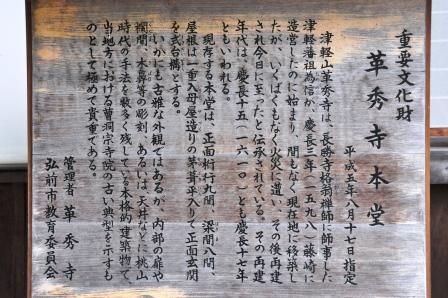 重要文化財
革秀寺本堂
平成五年八月十七日指定
津軽山革秀寺は、長勝寺格翁禅師に師事した
津軽藩祖為信が、慶長三年(一五九八)藤崎に
造営したのに始まり、間もなく現在地に移築し
たが、いくばくもなく火災に遭い、その後再建
され今日に至ったと伝承されている。その再建
年代は、慶長十五(一六一〇)とも慶長十七年
ともいわれる。
現存する本堂は、正面桁行九間、梁間八間、
屋根は一重入母屋造りの茅葺平入りで正面玄関
を式台構とする。
いかにも古雅な外観ではあるが、内部の扉や
欄間、木鼻等の彫刻、あるいは、天井などに桃山
時代の手法を数多く残している本格的建築物で、
当地方における曹洞宗寺院の古い典型を示すも
のとして極めて貴重である。
管理者 革秀寺
弘前市教育委員会